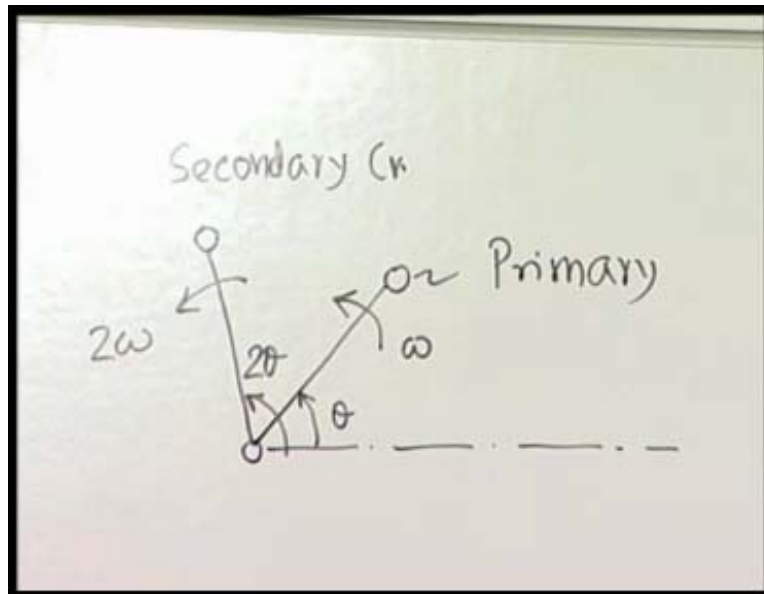 Secondary Cr
Primary
2ω
2θ
ω
θ